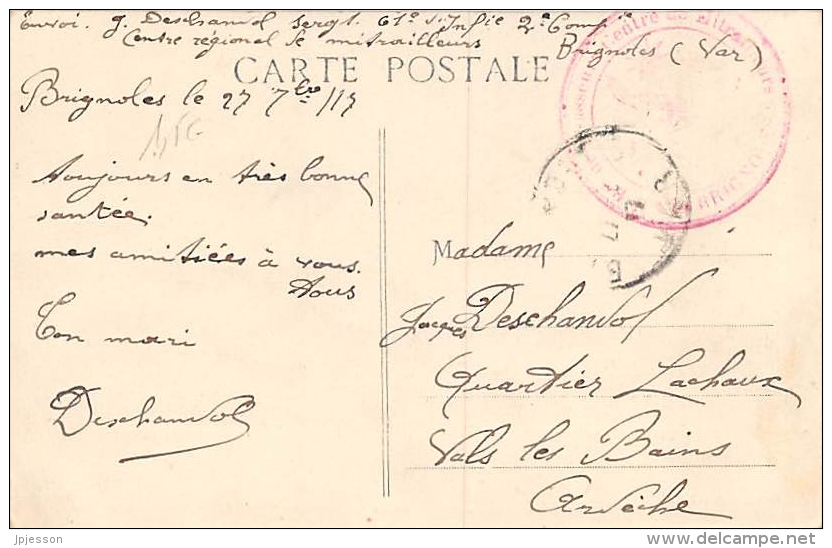 Envoi. J. Deschanvol Sergt. 61e d'Infie 2e Comp ie
Centre régional de mitrailleurs Brignoles (Var)
CARTE POSTALE
Brignoles le 27 7bre/17
Toujours en très bonne
santée.
mes amitiées à vous
Tous
Ton mari
Deschanvol
Madame
Jacques Deschanvol
Quartier Lachaux
Vals les Bains
Ardèche
jpjessen
delcampe.net